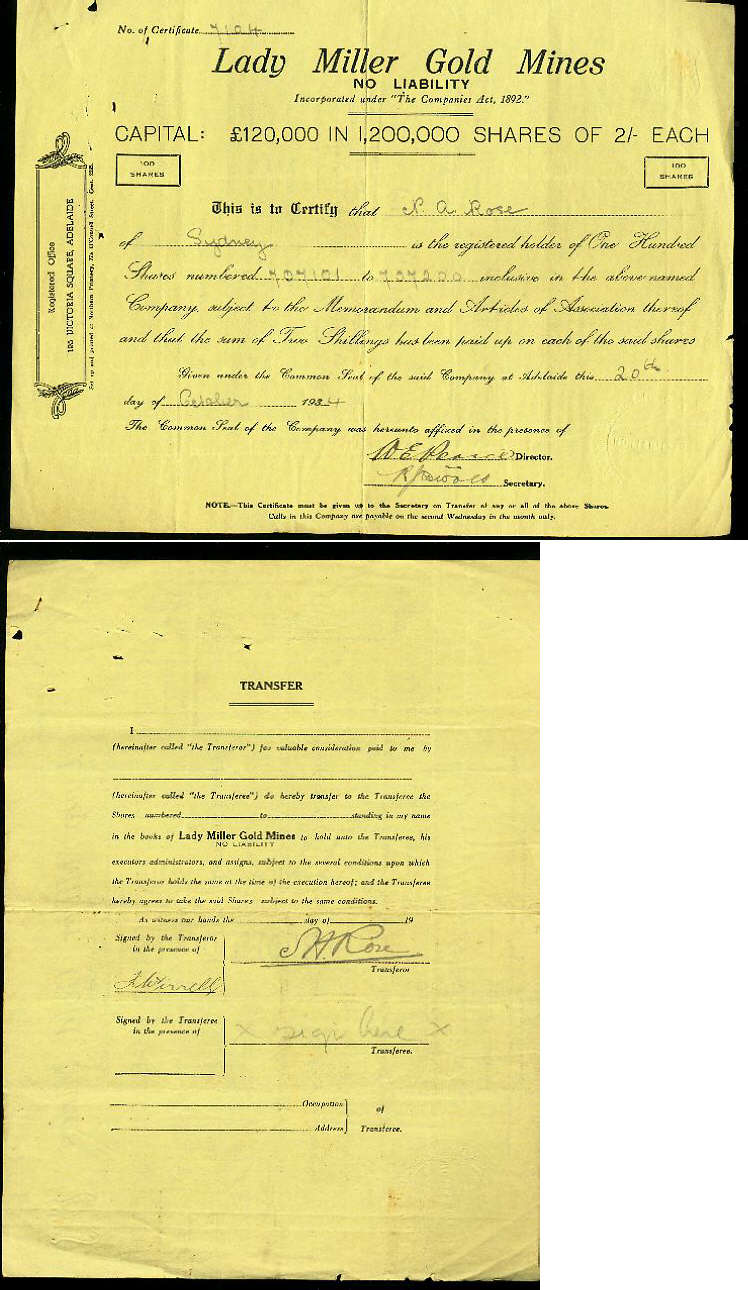 No. of Certificate 7124
Lady Miller Gold Mines
NO LIABILITY
Incorporated under "The Companies Act, 1892."
CAPITAL: £120,000 IN 1,200,000 SHARES OF 2/- EACH
100 SHARES
100 SHARES
Registered Office
195 VICTORIA SQUARE, ADELAIDE
This is to Certify that N. A. Rose
of Sydney is the registered holder of One Hundred
Shares numbered 707101 to 707200 inclusive in the above named
Company, subject to the Memorandum and Articles of Association thereof
and that the sum of Two Shillings has been paid up on each of the said shares
Given under the Common Seal of the said Company at Adelaide this 20th
day of October 1934
The Common Seal of the Company was hereunto affixed in the presence of
Director.
Secretary.
NOTE.—This Certificate must be given up to the Secretary on Transfer of any or all of the above Shares.
Calls in this Company are payable on the second Wednesday in the month only.
TRANSFER
I
(hereinafter called "the Transferor") for valuable consideration paid to me by
(hereinafter called "the Transferee") do hereby transfer to the Transferee the
Shares numbered to standing in my name
in the books of Lady Miller Gold Mines to hold unto the Transferee, his
NO LIABILITY
executors administrators, and assigns, subject to the several conditions upon which
the Transferor holds the same at the time of the execution hereof; and the Transferee
hereby agrees to take the said Shares subject to the same conditions.
As witness our hands the day of 19
Signed by the Transferor
in the presence of
Rose
Transferor
Signed by the Transferee
in the presence of
x sign here x
Transferee.
Occupation
of
Address
Transferee.